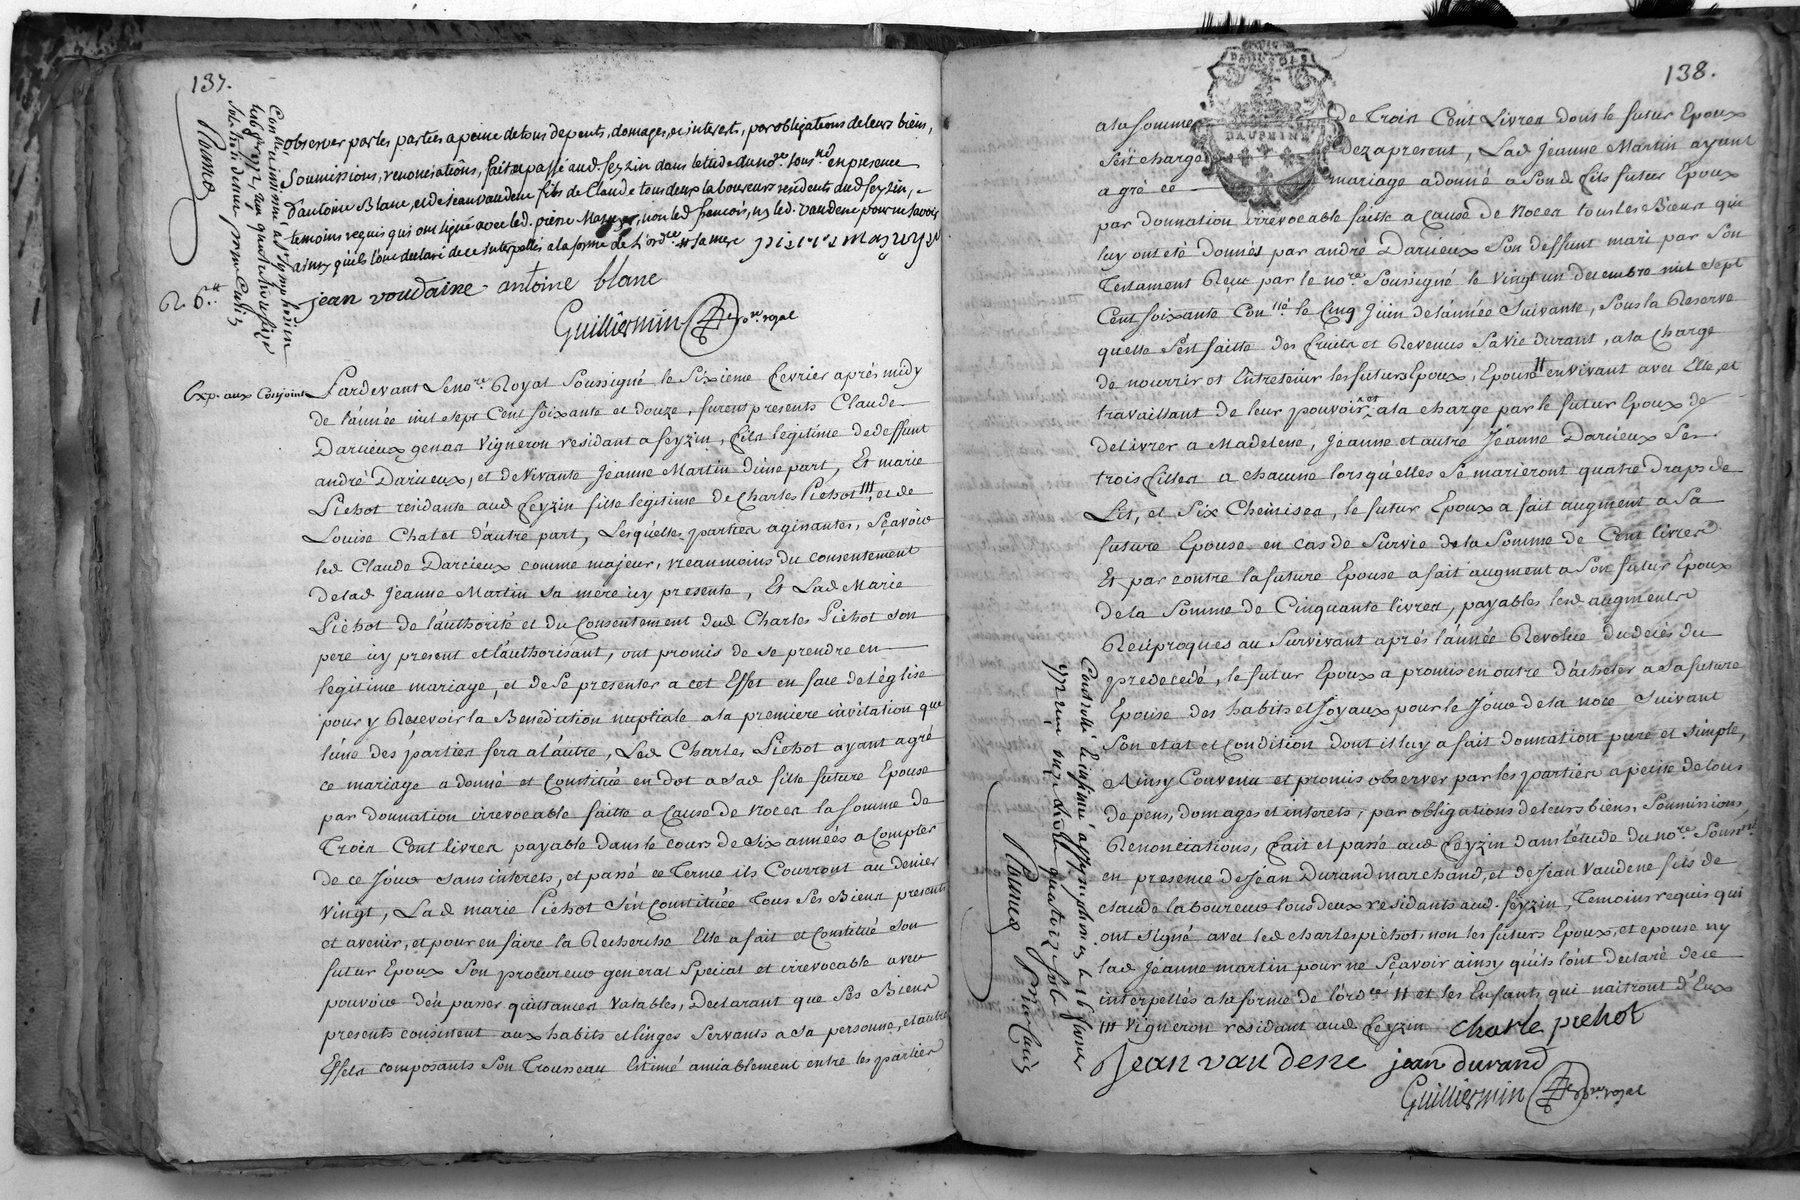 137.
observer par les parties a peine de tous depents, domages, et interests, par obligations de leurs biens,
Soumissions, renonciations, fait et passé aud. feyzin dans letude du no.re sous.né en presence
d'antoine Blanc, et de jean vaudene fils de Claude tous deux laboureurs residents aud feyzin,
temoins requis qui ont signé avec led. pierre Maguys, non led francois, ny led. vaudene pour ne savoir
ainsy quils l'ont declaré de ce interpellés a la forme de l'ord.ce
jean voudaine antoine blanc
Guilliermin no.re royal
R 6.tt
Exp. aux Conjoints
Pardevant Le no.re Royal Soussigné le Sixieme fevrier aprés midy
de l'année mil sept Cent soixante et douze, furent presents Claude
Darcieux genas Vigneron residant a feyzin, fils legitime de deffunt
andré Darcieux, et de vivante Jeanne Martin d'une part, Et marie
Pichot residante aud feyzin fille legitime de Charles Pichot III, et de
Louise Chatet d'autre part, Lesquélles parties agissantes, Sçavoir
led Claude Darcieux comme majeur, neanmoins du consentement
de lad Jeanne Martin sa mere icy presente, Et Lad Marie
Pichot de l'authorité et du Consentement dud Charles Pichot son
pere icy present et l'authorisant, ont promis de se prendre en
legitime mariage, et de se presenter a cet Effet en face de l'église
pour y Recevoir la Benediction nuptiale a la premiere invitation que
l'une des parties fera a l'autre, Led Charles Pichot ayant agré
ce mariage a donné et Constitué en dot a sad fille future Epouse
par donnation irrevocable faitte a Cause de Noces la somme de
Trois Cent livres payable dans le cours de six années a Compter
de ce Jour sans interets, et passé ce Terme ils Courront au denier
Vingt, Lad marie Pichot s'est Constituée Tous Ses Biens presents
et avenir, et pour en faire la Recherche Elle a fait et Constitué son
futur Epoux Son procureur general special et irrevocable avec
pouvoir d'en passer quittances Valables, Declarant que Ses Biens
presents consistent aux habits et linges servants a sa personne, et autres
Effets composants Son Trousseau Estimé amiablement entre les parties
138.
DAUPHINÉ
a la somme de Trois Cent Livres dont le futur Epoux
s'est chargé dez apresent, Lad Jeanne Martin ayant
agréé ce mariage a donné a Son d fils futur Epoux
par donnation irrevocable faitte a Cause de Noces tous les Biens qui
luy ont été donnés par andré Darcieux Son deffunt mari par Son
Testament Receu par le no.re Soussigné le Vingt un decembre mil Sept
Cent soixante Con.llé le Cinq Juin de l'année Suivante, Sous la Reserve
quelle s'est faitte des fruits et Revenus Sa vie durant, a la Charge
de nourrir et Entretenir les futurs Epoux, Epouse II en vivant avec Elle, et
travaillant de leur pouvoir et a la charge par le futur Epoux de
delivrer a Madeleine, Jeanne et autre Jeanne Darcieux Ses
trois filles a chacune lorsqu'elles se marieront quatre draps de
Lit, et Six Chemises, le futur Epoux a fait augment a Sa
future Epouse en cas de Survie de la Somme de Cent livres
Et par contre la future Epouse a fait augment a Son futur Epoux
de la Somme de Cinquante livres, payables lesd augments
Reciproques au Survivant aprés l'année Revolue du decés du
predecedé, le futur Epoux a promis en outre d'acheter a sa future
Epouse des habits et Joyaux pour le Jour de la noce Suivant
Son etat et Condition dont il luy a fait donnation pure et simple,
Ainsy Convenu et promis observer par les parties a peine de tous
depens, domages et interets, par obligations de leurs biens, Soumissions,
Renonciations, fait et passé aud feyzin dans l'étude du no.re Sous.né
en presence de Jean Durand marchand, et de Jean Vaudene fils de
claude laboureur tous deux residants aud. feyzin, Temoins requis qui
ont signé avec led charles pichot, non les futurs Epoux, et epouse ny
lad Jeanne martin pour ne Sçavoir ainsy quils l'ont declaré de ce
interpellés a la forme de l'ord.ce II et les Enfants qui naitront d'Eux
III Vigneron residant aud feyzin charle pichot
Jean vaudene jean durand
Guilliermin no.re royal